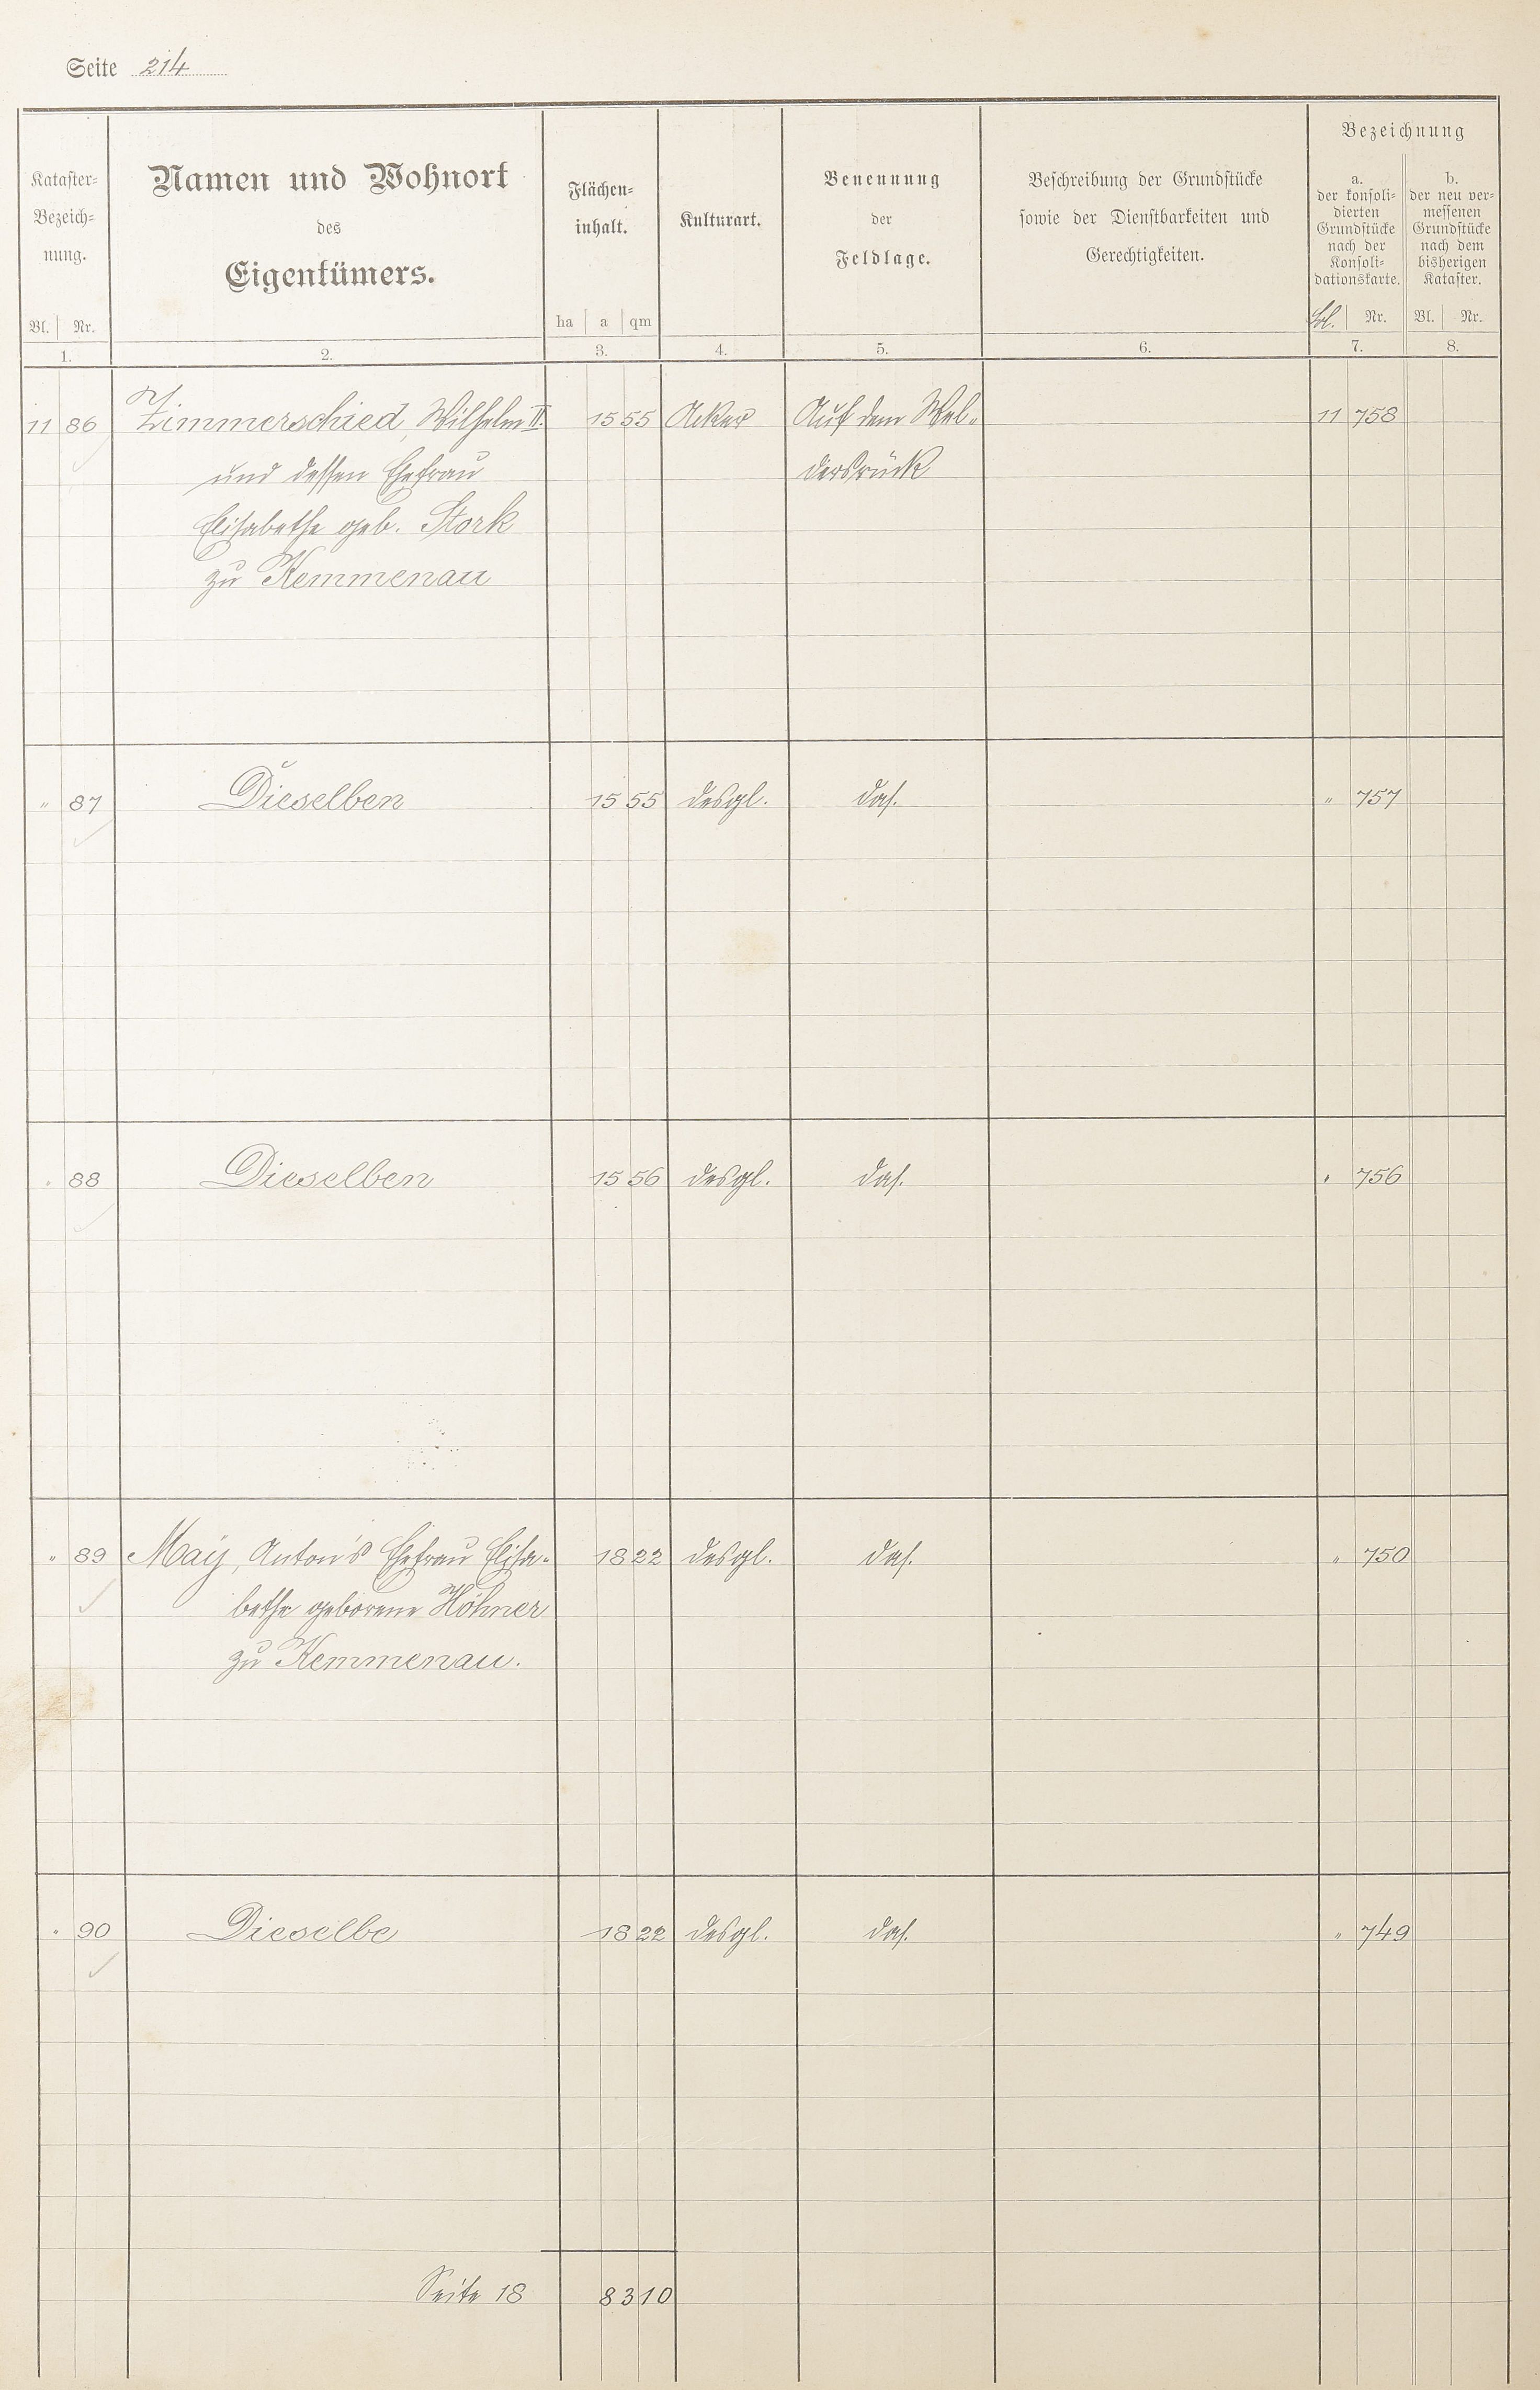 Seite 214
Kataster-
Bezeich-
nung.
Bl. Nr.
1.
Namen und Wohnort
des
Eigentümers.
2.
Flächen-
inhalt.
ha a qm
3.
Kulturart.
4.
Benennung
der
Feldlage.
5.
Beschreibung der Grundstücke
sowie der Dienstbarkeiten und
Gerechtigkeiten.
6.
Bezeichnung
a.
der konsoli-
dierten
Grundstücke
nach der
Konsoli-
dationskarte.
Nr.
7.
b.
der neu ver-
messenen
Grundstücke
nach dem
bisherigen
Kataster.
Bl. Nr.
8.
11 86 Zimmerschied, Wilhelm II. 15 55 Acker Auf dem Wel- 11 758
und dessen Ehefrau dersrück
Elisabethe geb. Stork
zu Kemmenau
" 87 Dieselben 15 55 desgl. das. " 757
" 88 Dieselben 15 56 desgl. das. " 756
" 89 May, Anton's Ehefrau Elisa- 18 22 desgl. das. " 750
bethe geborene Höhner
zu Kemmenau.
" 90 Dieselbe 18 22 desgl. das. " 749
Seite 18 83 10